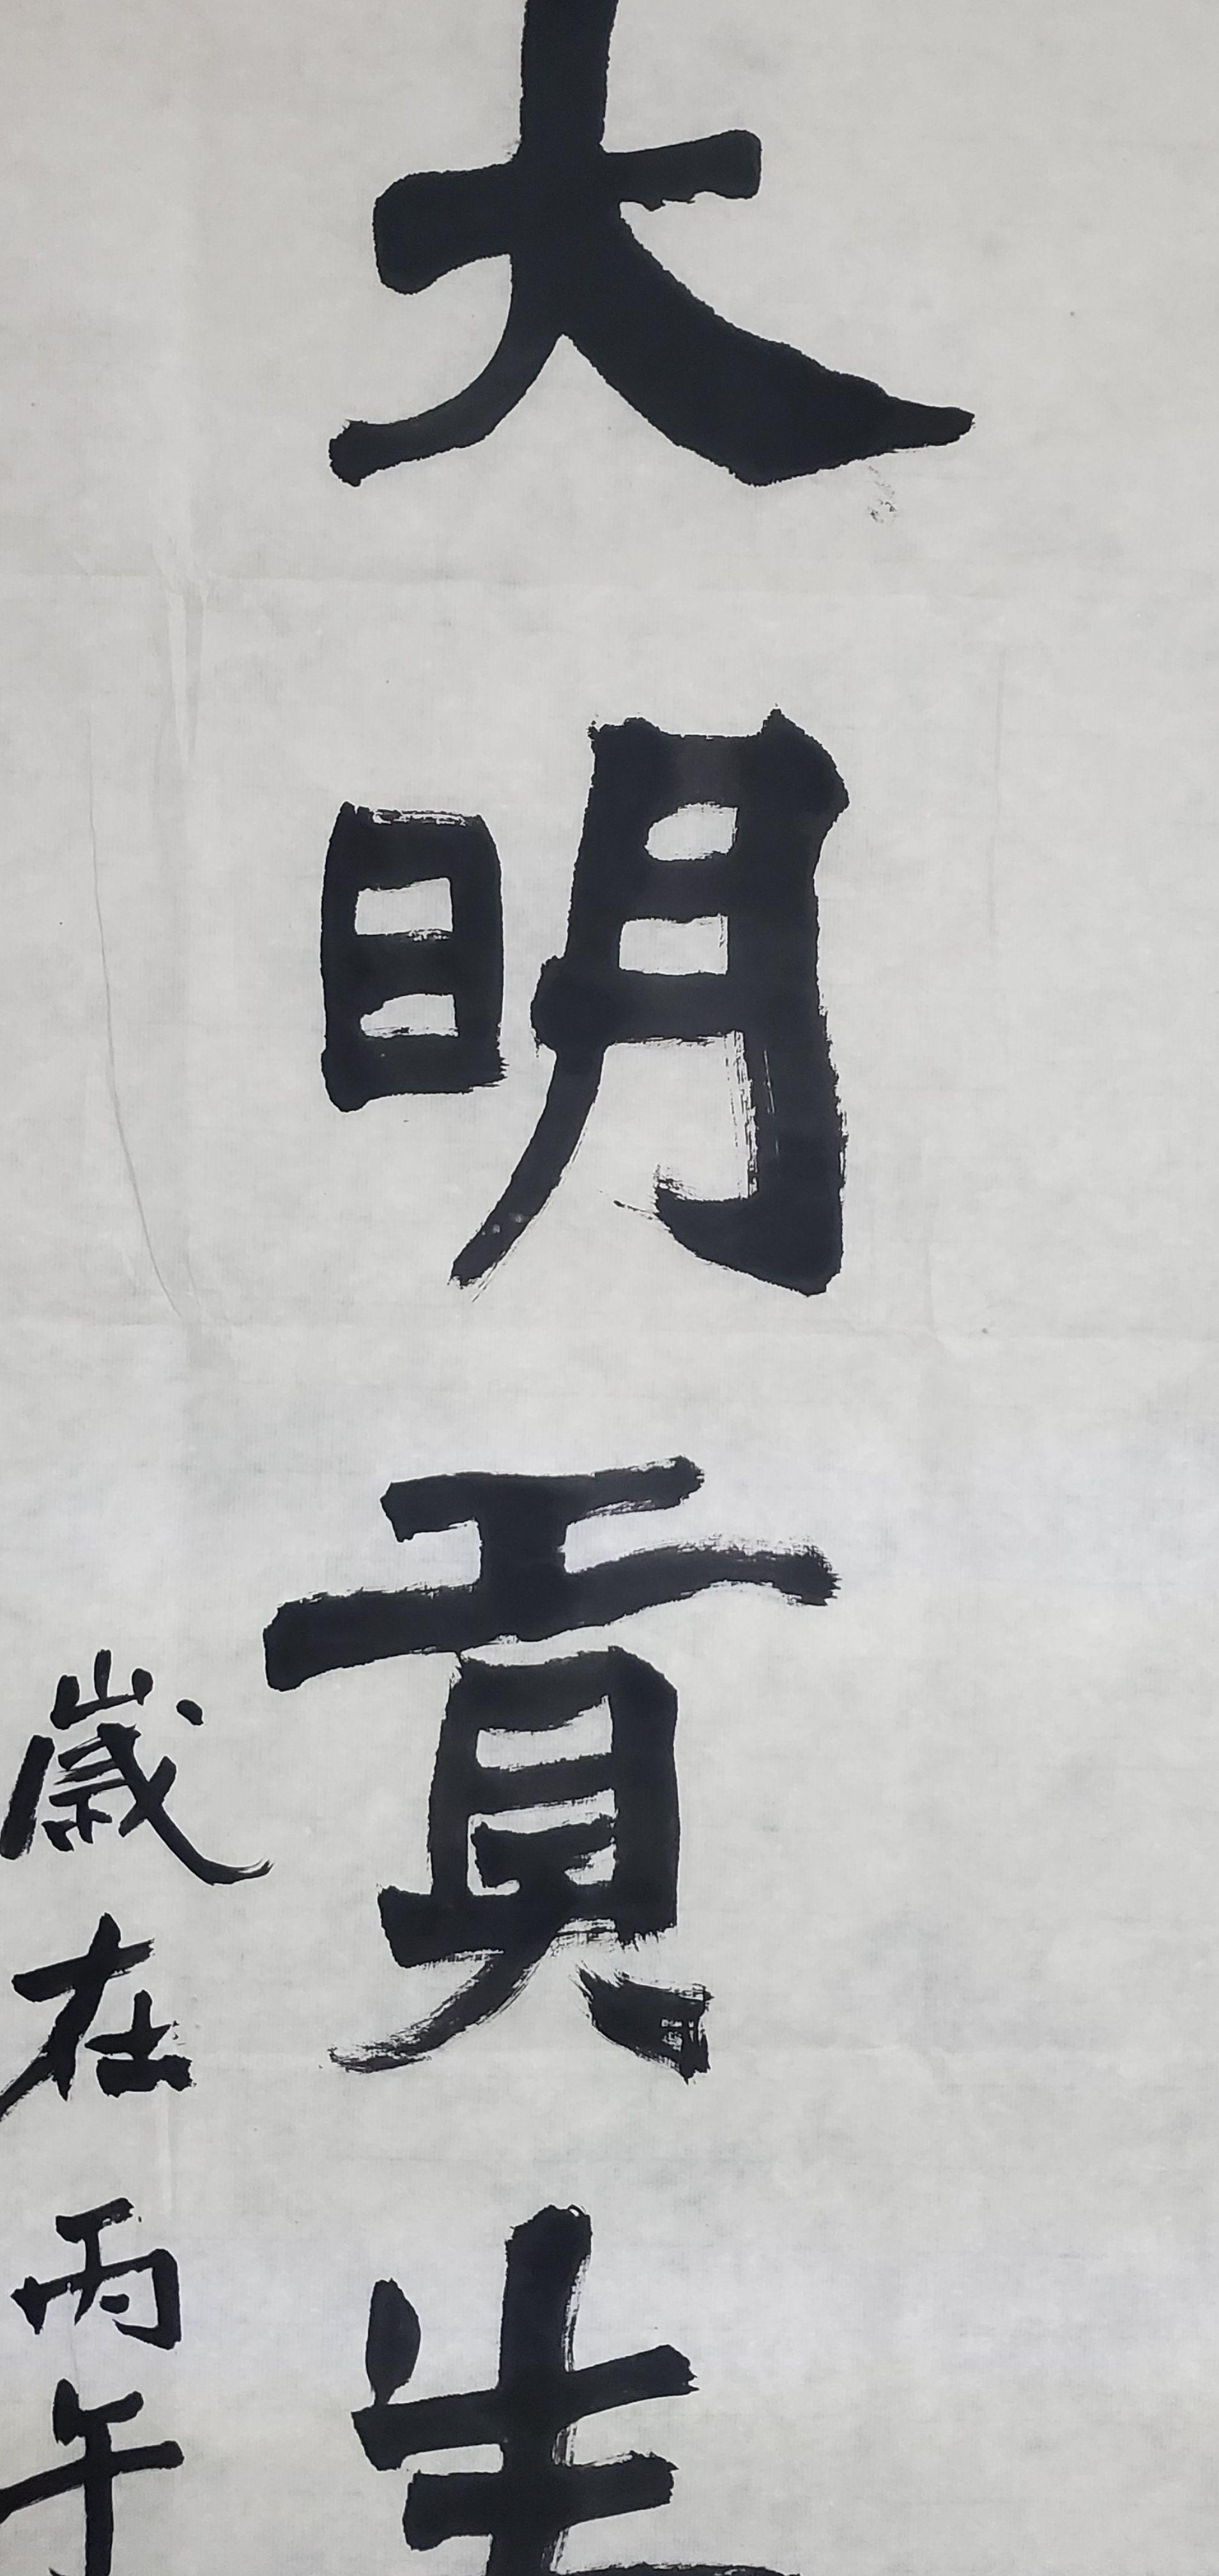 大明貢生
歲在丙午